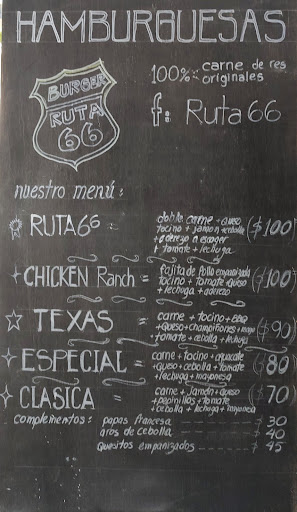 HAMBURGUESAS
BURGER
RUTA
66
100% carne de res
originales
f: Ruta 66
nuestro menú:
RUTA 66 = doble carne + queso ($100)
tocino + jamon + cebolla
+ aderezo a escoger
+ tomate + lechuga
CHICKEN Ranch = fajita de pollo empanizado ($100)
tocino + tomate + queso
+ lechuga + aderezo
TEXAS = carne + tocino + BBQ ($90)
+ queso + champiñones + mayo
+ tomate + cebolla + lechuga
ESPECIAL = carne + tocino + aguacate ($80)
+ queso + cebolla + tomate
+ lechuga + mayonesa
CLASICA = carne + Jamón + queso ($70)
+ pepinillos + tomate
+ cebolla + lechuga + mayonesa
Complementos: papas francesa 30
aros de cebolla 40
Quesitos empanizados 45